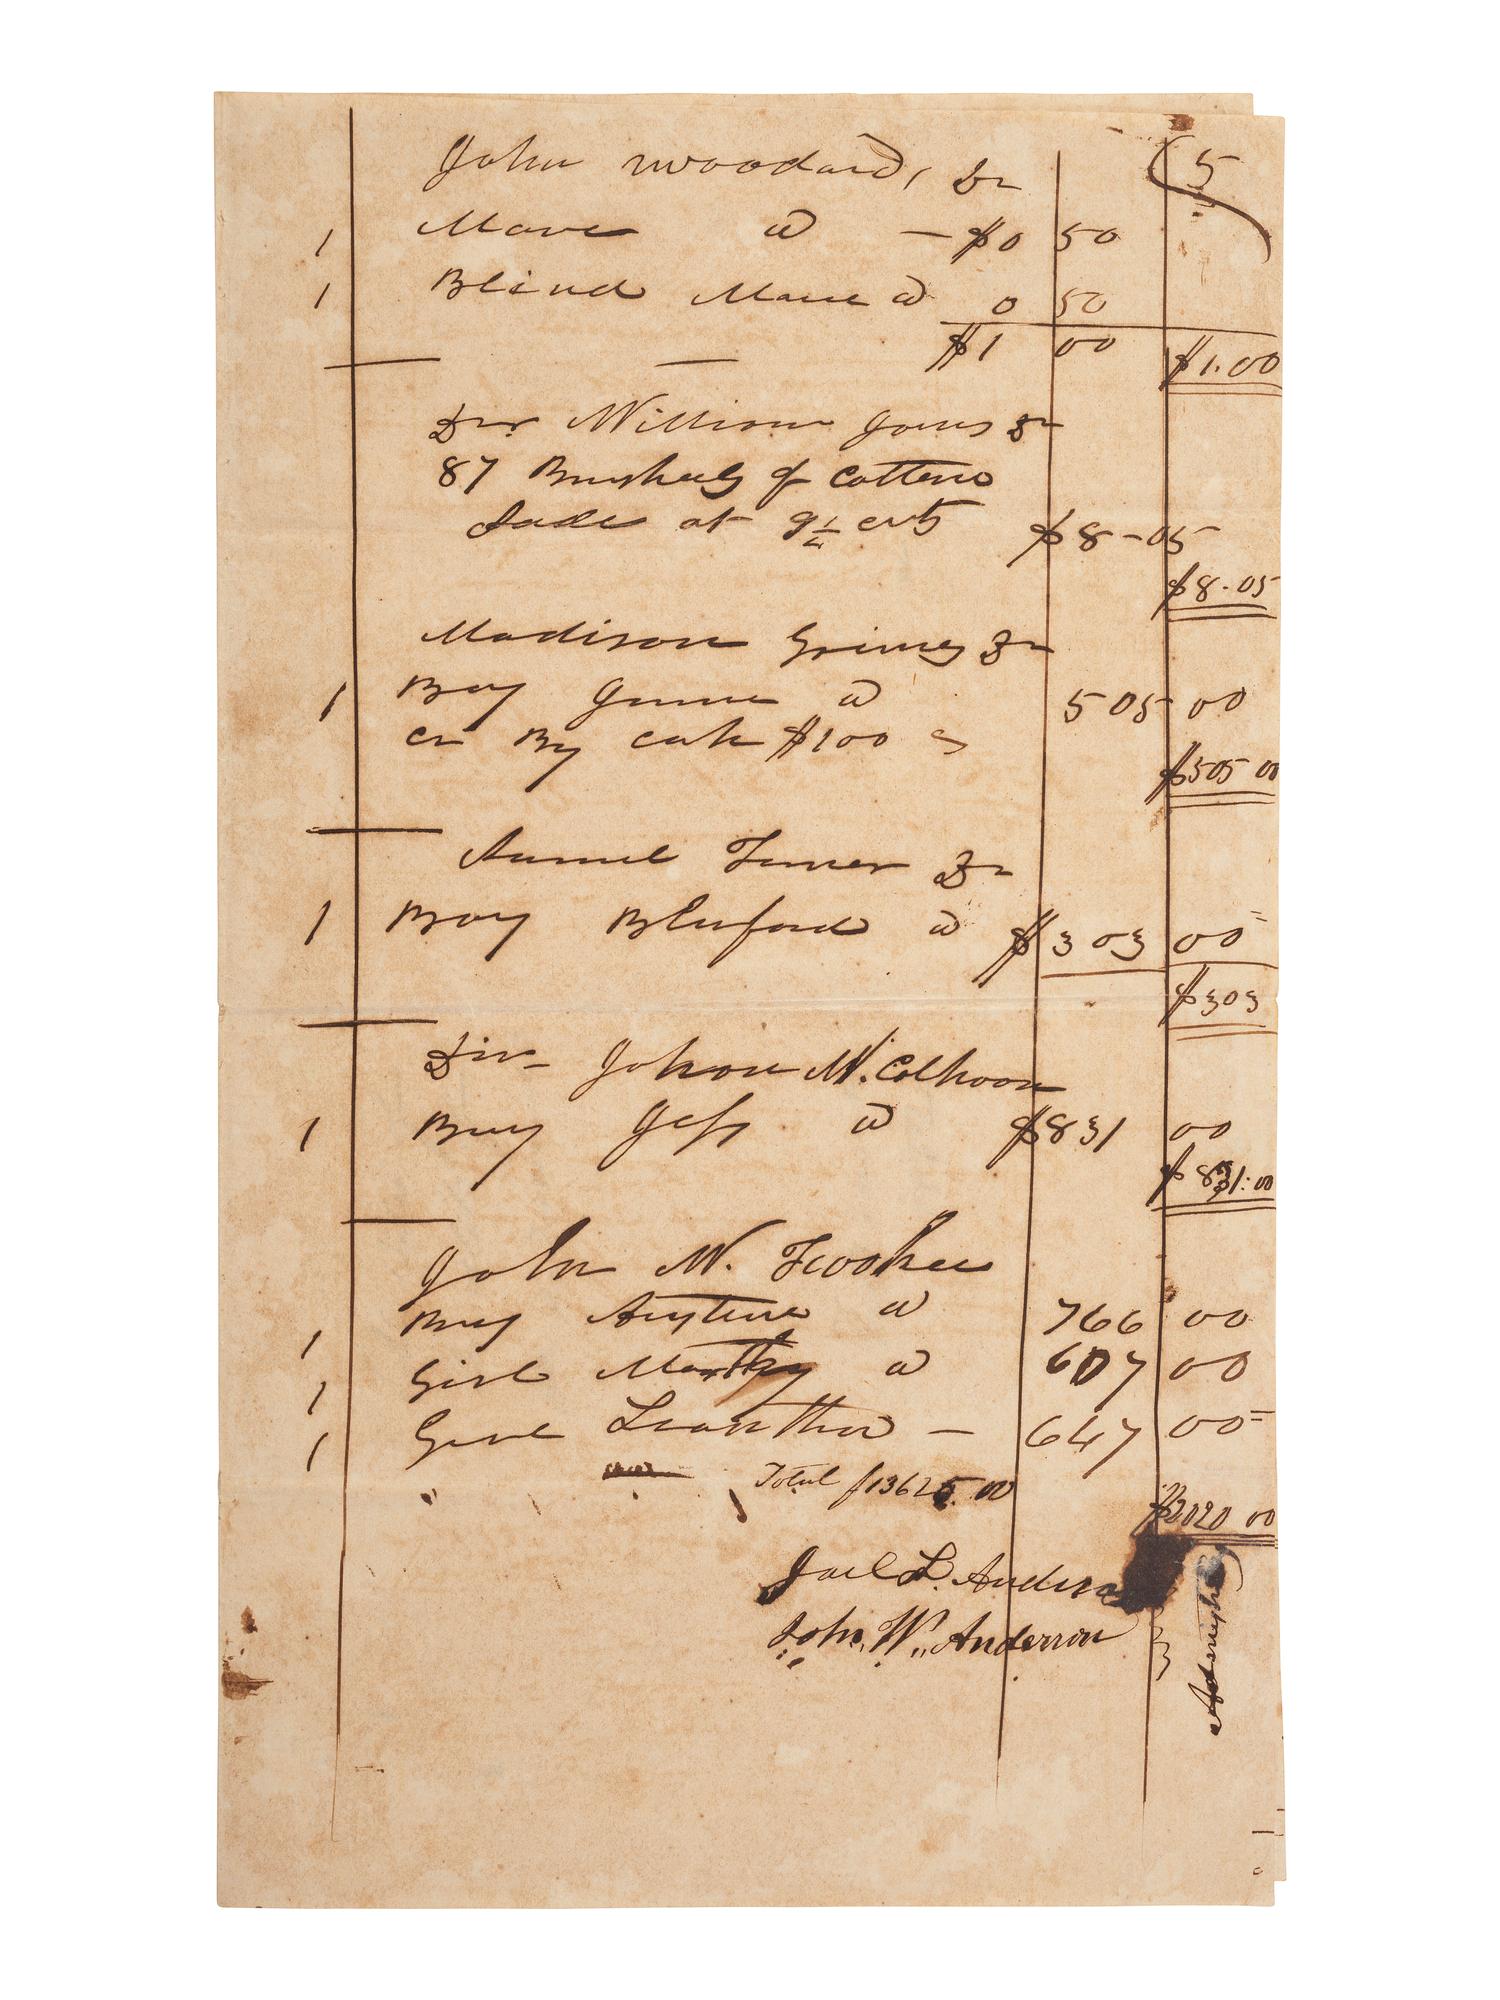 (5
John Woodard, Dr
1 Mare @ — $0 50
1 Blind Mare @ 0 50
$1 00 $1.00
Dr William Jones Dr
87 Bushels of Cotten
Sade at 9 1/4 cts $8-05
$8.05
Madison Grimes Dr
1 Boy @ 505 00
Cr By cash $100
$505 00
Samuel Turner Dr
1 Boy Bluford @ $303 00
$303
John W. Colhoon
1 Boy Jess @ $831 00
$831:00
John W. Tooke
1 Boy @ 766 00
1 Girl Marthy @ 607 00
1 Girl — 647 00
Total $13625.00
$2020 00
Joel L. Anderson
John W. Anderson